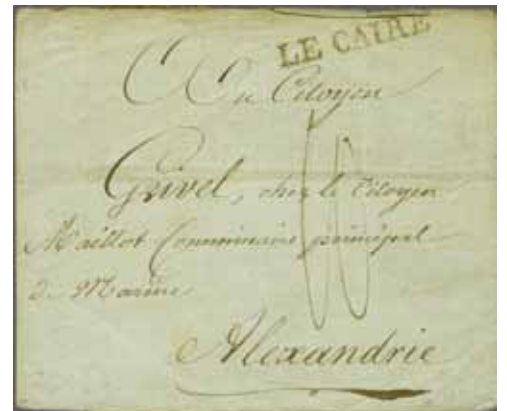 LE CAIRE
Au Citoyen
Grivel, chez le Citoyen
Maillot Commissaire principal
de Marine
Alexandrie